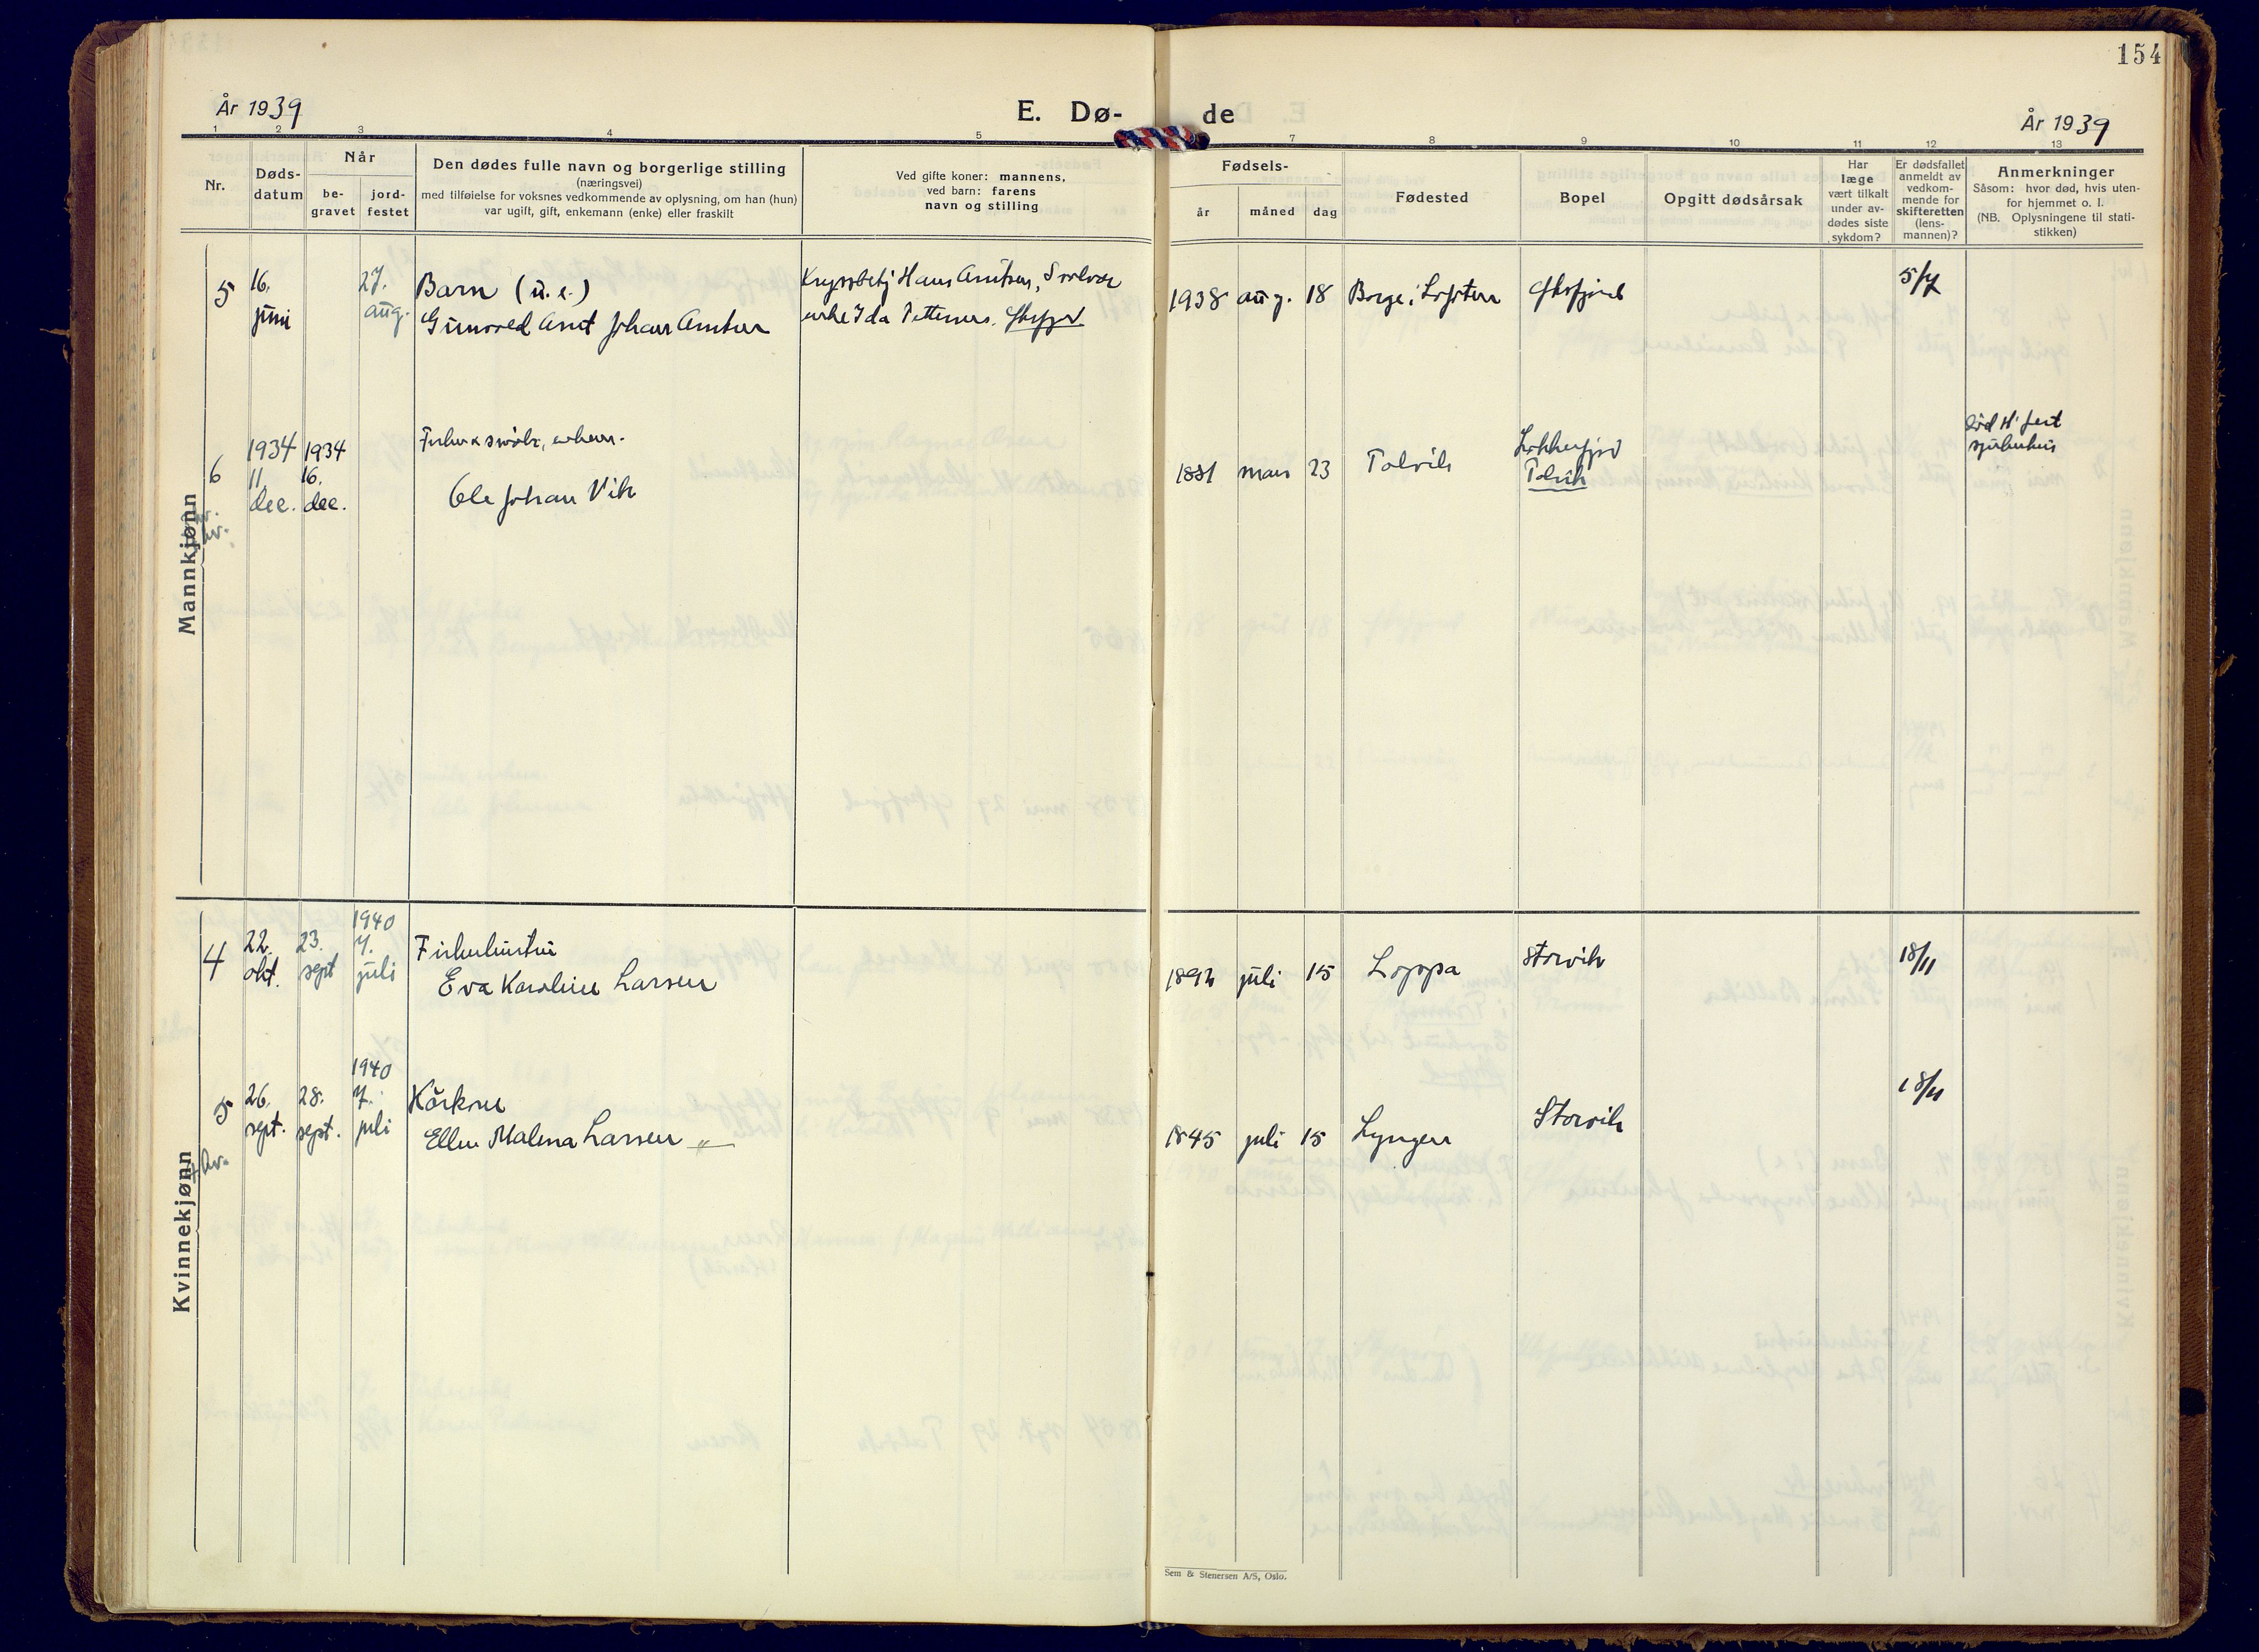 154
År 1939
E. Dø-
de
År 1939
1 2 3 4 5 7 8 9 10 11 12 13
Nr.
Døds-
datum
Når
be-
gravet
jord-
festet
Den dødes fulle navn og borgerlige stilling
(næringsvei)
med tilføielse for voksnes vedkommende av oplysning, om han (hun)
var ugift, gift, enkemann (enke) eller fraskilt
Ved gifte koner: mannens,
ved barn: farens
navn og stilling
Fødsels-
år
måned
dag
Fødested
Bopel
Opgitt dødsårsak
Har
læge
vært tilkalt
under av-
dødes siste
sykdom?
Er dødsfallet
anmeldt av
vedkom-
mende for
skifteretten
(lens-
mannen)?
Anmerkninger
Såsom: hvor død, hvis uten-
for hjemmet o. l.
(NB. Oplysningene til stati-
stikken)
Mannkjønn
5
16.
juni
27.
aug.
Barn (u. e.)
Gunvald Arnt Johan Arntsen
Hans Arntsen, Svolvær
Ida Pettersen.
1938 aug. 18
Borge i Lofoten
5/7
6
1934
11.
dec.
1934
16.
dec.
Ole Johan Vik
1881 mars 23
Talvik
Talvik
død H.fest
sjukehus
Kvinnekjønn
4
22.
okt.
23.
sept
1940
7.
juli
Fiskerhustru
Eva Karoline Larsen
juli 15
Loppa
Storvik
18/11
5
26.
sept.
28.
sept.
1940
7.
juli
Ellen Malena Larsen
1845 juli 15
Lyngen
Storvik
18/11
Sem & Stenersen A/S, Oslo.